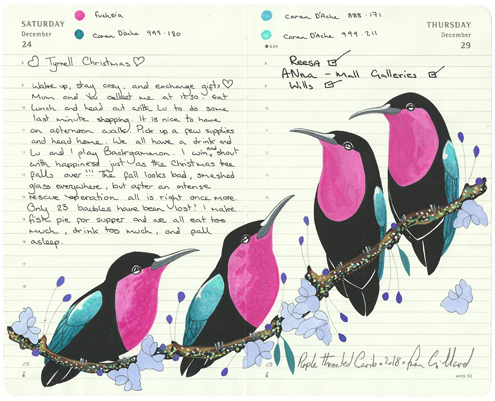 SATURDAY
December
24
fuchsia
Caran D'Ache 999·180
♡ Tyrrell Christmas ♡
Wake up, stay cosy, and exchange gifts ♡
Mum and Yo collect me at 11:30. Eat
lunch and head out with Lu to do some
last minute shopping. It is nice to have
an afternoon walk. Pick up a few supplies
and head home. We all have a drink and
Lu and I play Backgammon. I win, and shout
with happiness just as the Christmas tree
falls over!!! The fall looks bad, smashed
glass everywhere, but after an intense
rescue operation all is right once more.
Only 23 baubles have been lost! I make
fish pie for supper and we all eat too
much, drink too much, and fall
asleep.
Caran D'Ache 888·171
Caran D'Ache 999·211
THURSDAY
December
29
Reesa
Anna - Mall Galleries
Wills
Purple Throated Carib · 2018 · Fran Giffard
week 52